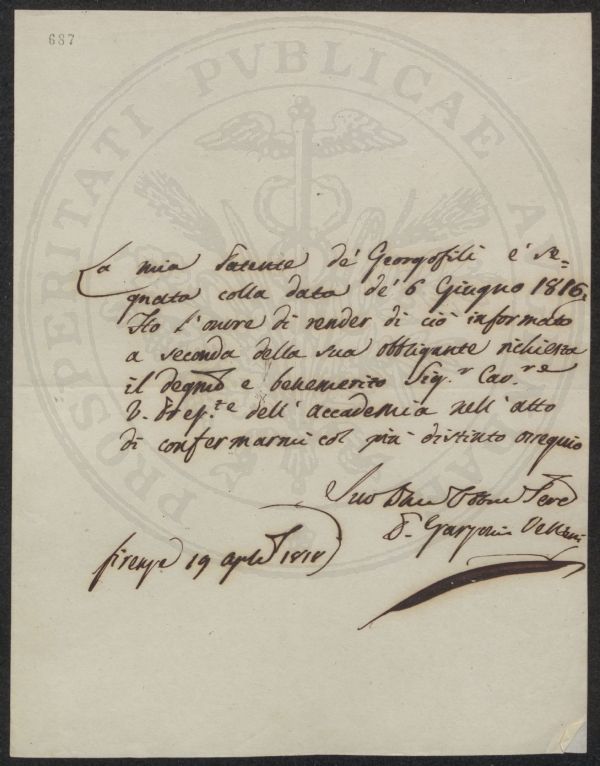 687
PROSPERITATI PVBLICAE AV
La mia Patente de' Georgofili è se=
gnata colla data de' 6 Giugno 1816.
Ho l'onore di render di ciò informato
a seconda della sua obbligante richiesta
il degnmo e benemerito Sig.r Cav.re
V. Presi.te dell'Accademia nell'atto
di confermarmi col più distinto ossequio
Suo Dmo Obbmo Serre
Firenze 19 aple 1818